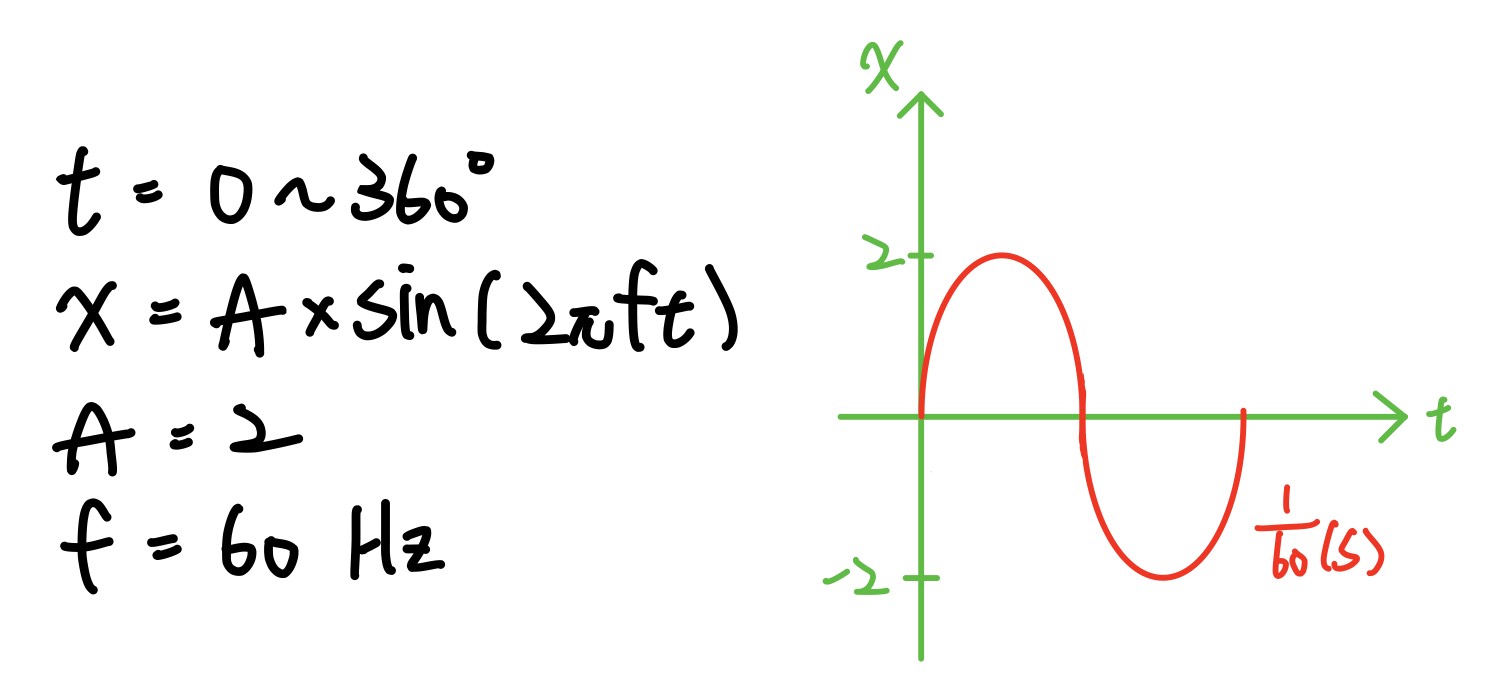 t = 0 ~ 360°
x = A × sin(2πft)
A = 2
f = 60 Hz
x
2
-2
t
1/60 (s)